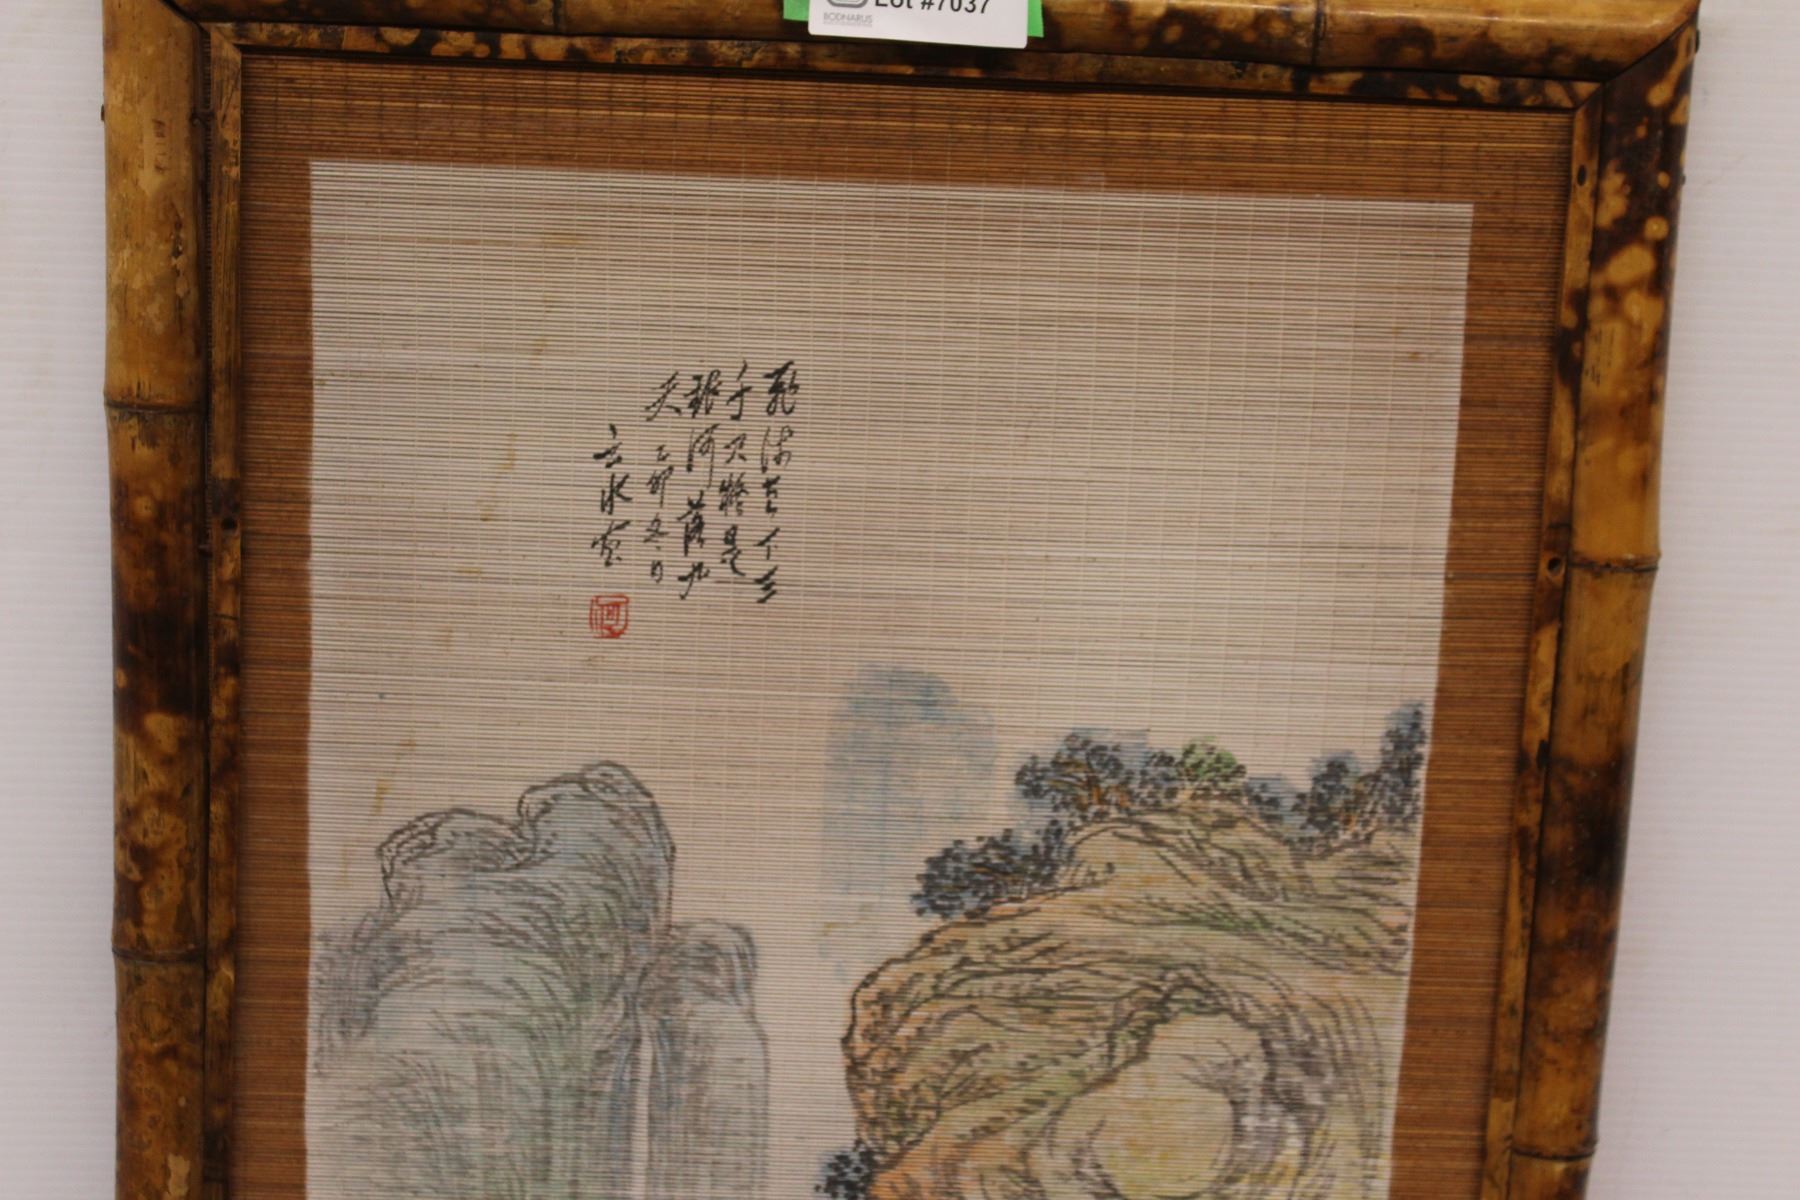 Lot #7037
BODNARUS
飛流直下三
千尺疑是
银河落九
天 乙卯冬日
玄水寫